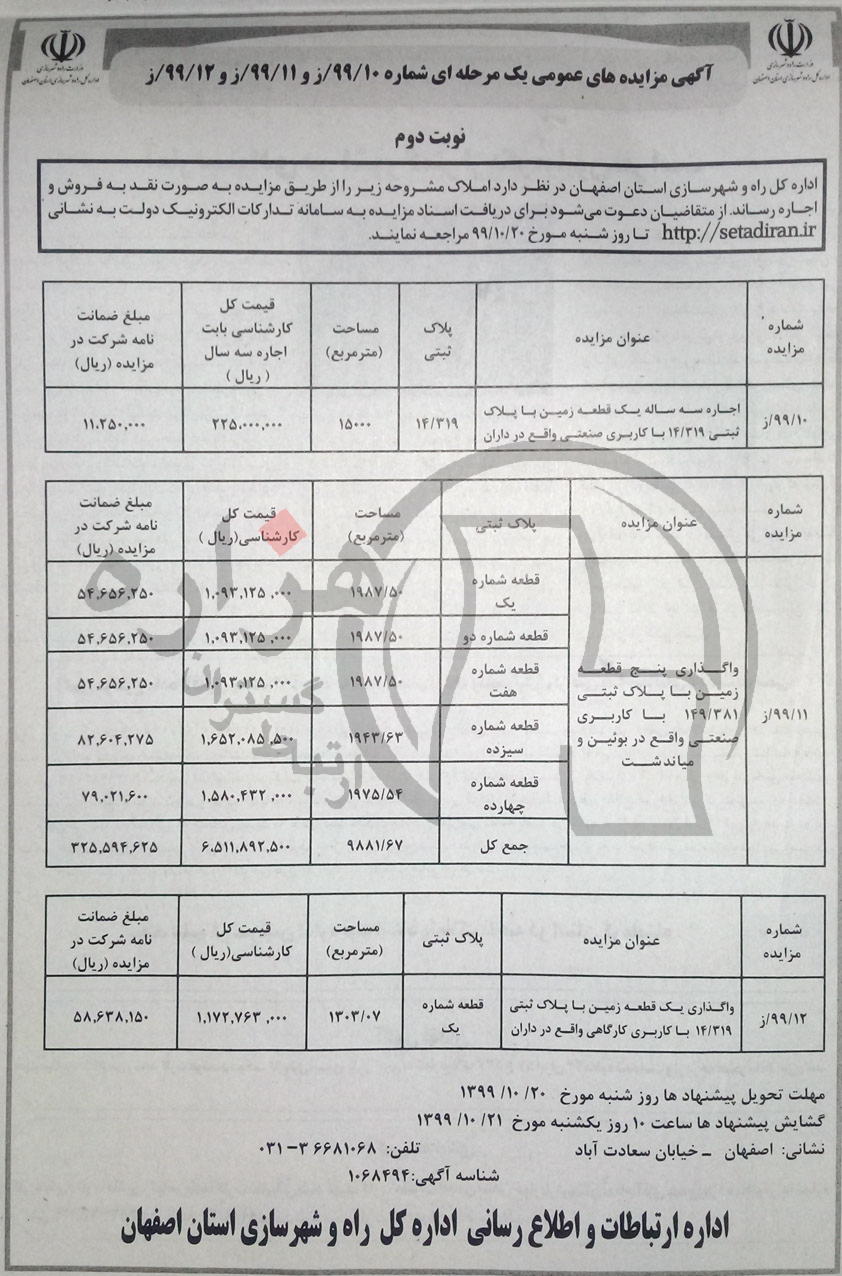 وزارت راه و شهرسازی
اداره کل راه و شهرسازی استان اصفهان
وزارت راه و شهرسازی
اداره کل راه و شهرسازی استان اصفهان
آگهی مزایده های عمومی یک مرحله ای شماره ۹۹/۱۰/ز و ۹۹/۱۱/ز و ۹۹/۱۲/ز
نوبت دوم
اداره کل راه و شهرسازی استان اصفهان در نظر دارد املاک مشروحه زیر را از طریق مزایده به صورت نقد به فروش و
اجاره رساند. از متقاضیان دعوت می‌شود برای دریافت اسناد مزایده به سامانه تدارکات الکترونیک دولت به نشانی
http://setadiran.ir تا روز شنبه مورخ ۹۹/۱۰/۲۰ مراجعه نمایند.
شماره مزایده
عنوان مزایده
پلاک ثبتی
مساحت (مترمربع)
قیمت کل کارشناسی بابت اجاره سه سال (ریال)
مبلغ ضمانت نامه شرکت در مزایده (ریال)
۹۹/۱۰/ز
اجاره سه ساله یک قطعه زمین با پلاک
ثبتی ۱۴/۳۱۹ با کاربری صنعتی واقع در داران
۱۴/۳۱۹
۱۵۰۰۰
۲۲۵،۰۰۰,۰۰۰
۱۱،۲۵۰,۰۰۰
شماره مزایده
عنوان مزایده
پلاک ثبتی
مساحت (مترمربع)
قیمت کل کارشناسی(ریال )
مبلغ ضمانت نامه شرکت در مزایده (ریال)
۹۹/۱۱/ز
واگذاری پنج قطعه
زمین با پلاک ثبتی
۱۴۹/۳۸۱ با کاربری
صنعتی واقع در بوئین و
میاندشت
قطعه شماره یک
۱۹۸۷/۵۰
۱,۰۹۳,۱۲۵ ,۰۰۰
۵۴,۶۵۶,۲۵۰
قطعه شماره دو
۱۹۸۷/۵۰
۱,۰۹۳,۱۲۵ ,۰۰۰
۵۴,۶۵۶,۲۵۰
قطعه شماره هفت
۱۹۸۷/۵۰
۱,۰۹۳,۱۲۵ ,۰۰۰
۵۴,۶۵۶,۲۵۰
قطعه شماره سیزده
۱۹۴۳/۶۳
۱,۶۵۲,۰۸۵ ,۵۰۰
۸۲,۶۰۴,۲۷۵
قطعه شماره چهارده
۱۹۷۵/۵۴
۱,۵۸۰,۴۳۲ ,۰۰۰
۷۹,۰۲۱,۶۰۰
جمع کل
۹۸۸۱/۶۷
۶,۵۱۱,۸۹۲,۵۰۰
۳۲۵,۵۹۴,۶۲۵
شماره مزایده
عنوان مزایده
پلاک ثبتی
مساحت (مترمربع)
قیمت کل کارشناسی(ریال )
مبلغ ضمانت نامه شرکت در مزایده (ریال)
۹۹/۱۲/ز
واگذاری یک قطعه زمین با پلاک ثبتی
۱۴/۳۱۹ با کاربری کارگاهی واقع در داران
قطعه شماره یک
۱۳۰۳/۰۷
۱,۱۷۲,۷۶۳ ,۰۰۰
۵۸,۶۳۸,۱۵۰
مهلت تحویل پیشنهاد ها روز شنبه مورخ ۲۰/ ۱۰/ ۱۳۹۹
گشایش پیشنهاد ها ساعت ۱۰ روز یکشنبه مورخ ۲۱/ ۱۰/ ۱۳۹۹
نشانی: اصفهان – خیابان سعادت آباد تلفن: ۳۶۶۸۱۰۶۸–۰۳۱
شناسه آگهی:۱۰۶۸۴۹۴
اداره ارتباطات و اطلاع رسانی اداره کل راه و شهرسازی استان اصفهان
هزاره
گستران
ارتباط